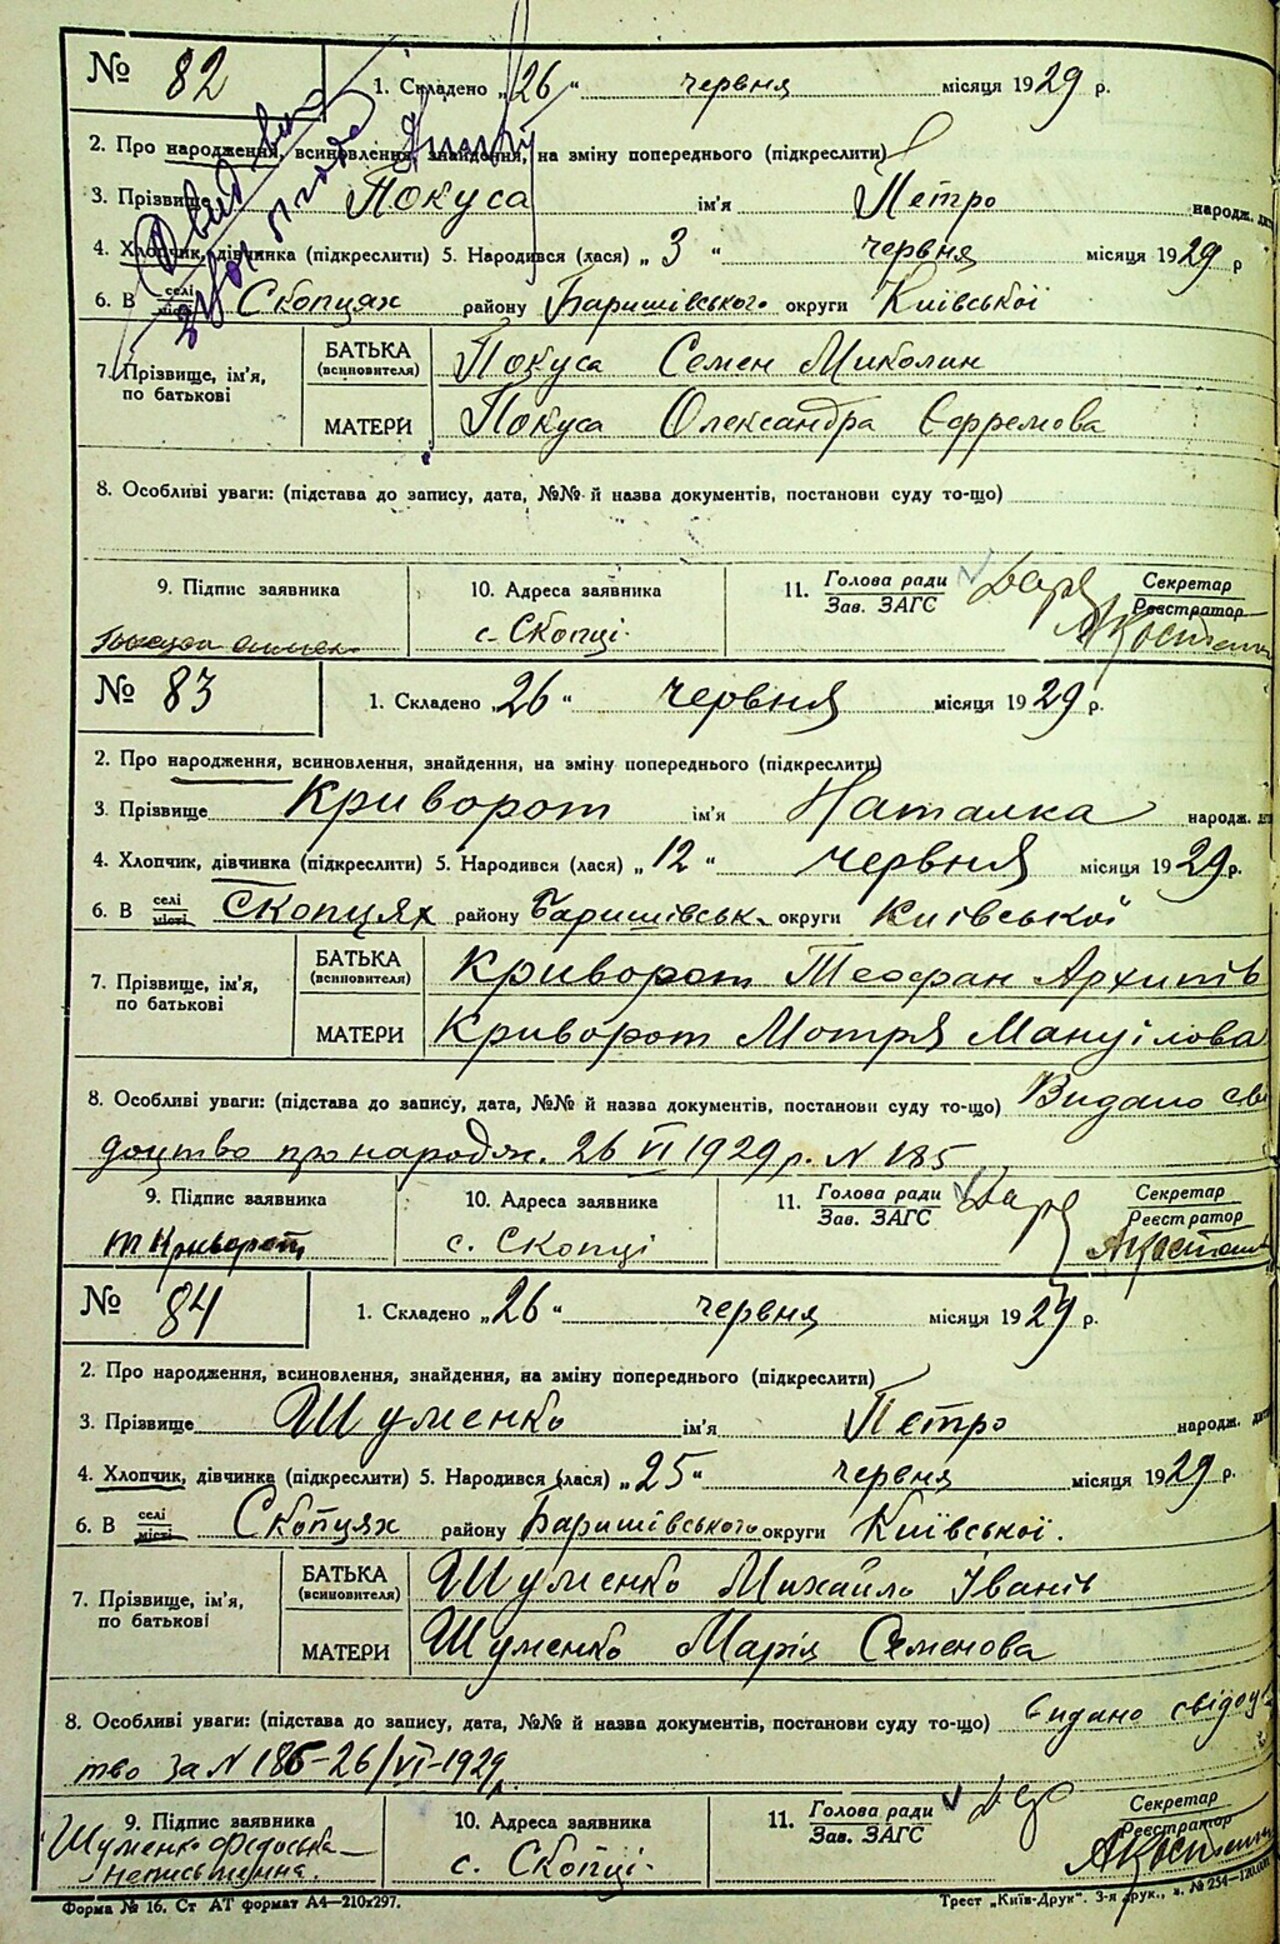 № 82
1. Складено „26“ червня місяця 1929 р.
2. Про народження, всиновлення, знайдення, на зміну попереднього (підкреслити)
3. Прізвище Покуса ім'я Петро народж.
4. Хлопчик, дівчинка (підкреслити) 5. Народився (лася) „3“ червня місяця 1929 р
6. В селі місті Скопцях району Баришівського округи Київської
7. Прізвище, ім'я, по батькові
БАТЬКА (всиновителя) Покуса Семен Миколин
МАТЕРИ Покуса Олександра Єфремова
8. Особливі уваги: (підстава до запису, дата, №№ й назва документів, постанови суду то-що)
9. Підпис заявника
10. Адреса заявника
11. Голова ради Зав. ЗАГС
Секретар Реєстратор
с. Скопці.
№ 83
1. Складено „26“ червня місяця 1929 р.
2. Про народження, всиновлення, знайдення, на зміну попереднього (підкреслити)
3. Прізвище Криворот ім'я Наталка народж.
4. Хлопчик, дівчинка (підкреслити) 5. Народився (лася) „12“ червня місяця 1929 р.
6. В селі місті Скопцях району Баришівськ. округи Київської
7. Прізвище, ім'я, по батькові
БАТЬКА (всиновителя) Криворот Теофан Архипів
МАТЕРИ Криворот Мотря Мануілова
8. Особливі уваги: (підстава до запису, дата, №№ й назва документів, постанови суду то-що) Видано сві
доцтво про народж. 26 VI 1929 р. N 185
9. Підпис заявника
10. Адреса заявника
11. Голова ради Зав. ЗАГС
Секретар Реєстратор
т Криворот
с. Скопці
№ 84
1. Складено „26“ червня місяця 1929 р.
2. Про народження, всиновлення, знайдення, на зміну попереднього (підкреслити)
3. Прізвище Шуменко ім'я Петро народж.
4. Хлопчик, дівчинка (підкреслити) 5. Народився (лася) „25“ червня місяця 1929 р.
6. В селі місті Скопцях району Баришівського округи Київської.
7. Прізвище, ім'я, по батькові
БАТЬКА (всиновителя) Шуменко Михайло Іванів
МАТЕРИ Шуменко Марія Семенова
8. Особливі уваги: (підстава до запису, дата, №№ й назва документів, постанови суду то-що) видано свідоц
тво за N 186-26/VI-1929 р.
9. Підпис заявника
10. Адреса заявника
11. Голова ради Зав. ЗАГС
Секретар Реєстратор
Шуменко Федоська –
неписьменна.
с. Скопці.
Форма № 16. Ст АТ формат А4—210х297.
Трест „Київ-Друк“. 3-я друк., № 254—